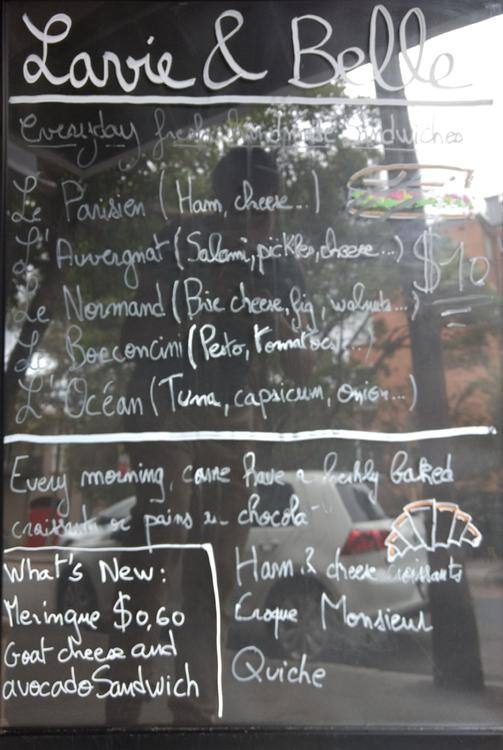 Lavie & Belle
Everyday fresh handmade sandwiches
Le Parisien (Ham, cheese...)
L'Auvergnat (Salami, pickles, cheese...)
$10
Le Normand (Brie cheese, fig, walnuts...)
Le Bocconcini (Pesto, tomatoes...)
L'Océan (Tuna, capsicum, onion...)
Every morning, come have a freshly baked
croissants or pains au chocolat
What's New:
Meringue $0,60
Goat cheese and
avocado Sandwich
Ham & cheese croissants
Croque Monsieur
Quiche